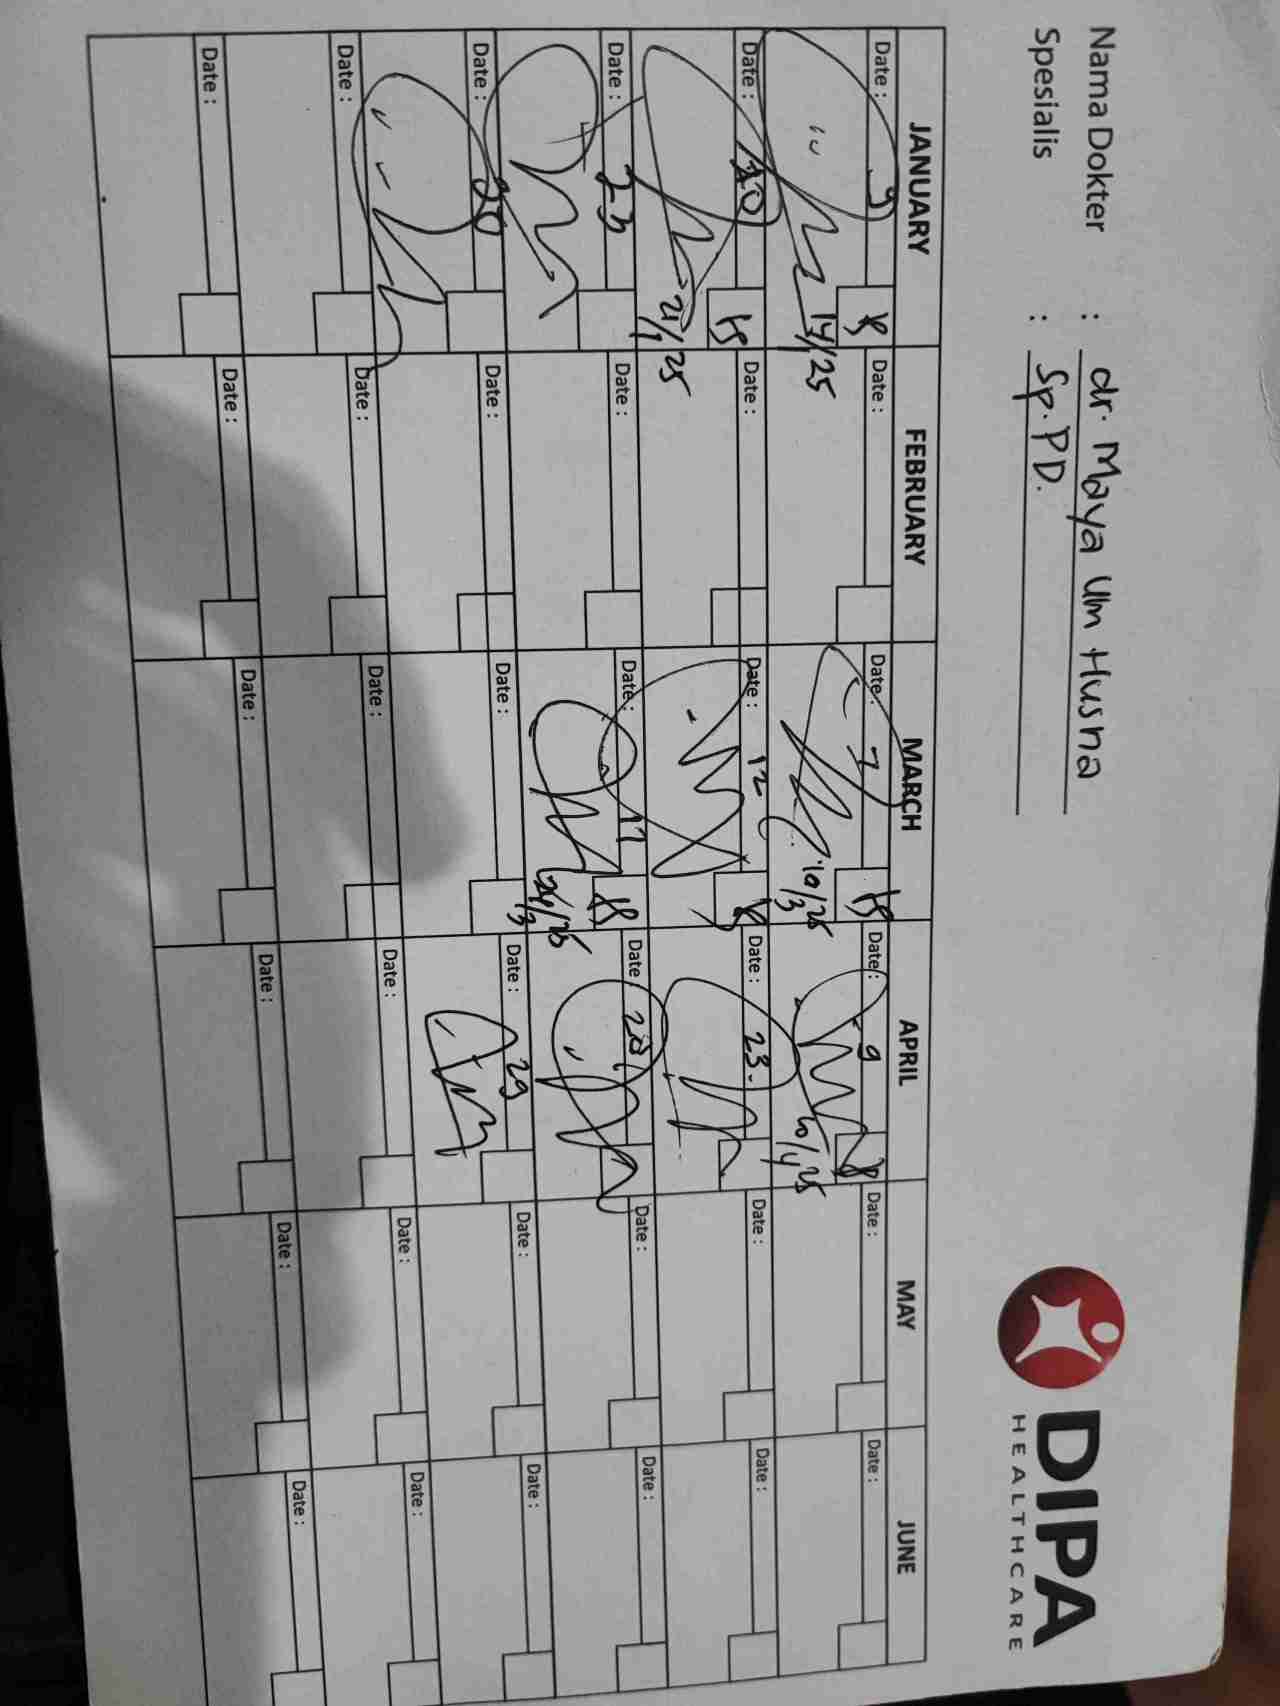 Nama Dokter : dr. Maya Ulm Husna
Spesialis : Sp. PD.
DIPA
HEALTHCARE
JANUARY FEBRUARY MARCH APRIL MAY JUNE
Date : 9 Date : Date : 7 Date : 9 Date : Date :
14/1/25 10/3/25 10/4/25
Date : 20 Date : Date : 12 Date : 23. Date : Date :
21/1/25
Date : 23 Date : Date : 17 Date : 28 Date : Date :
24/3/25
Date : Date : Date : Date : 29 Date : Date :
Date : Date : Date : Date : Date : Date :
Date : Date : Date : Date : Date : Date :